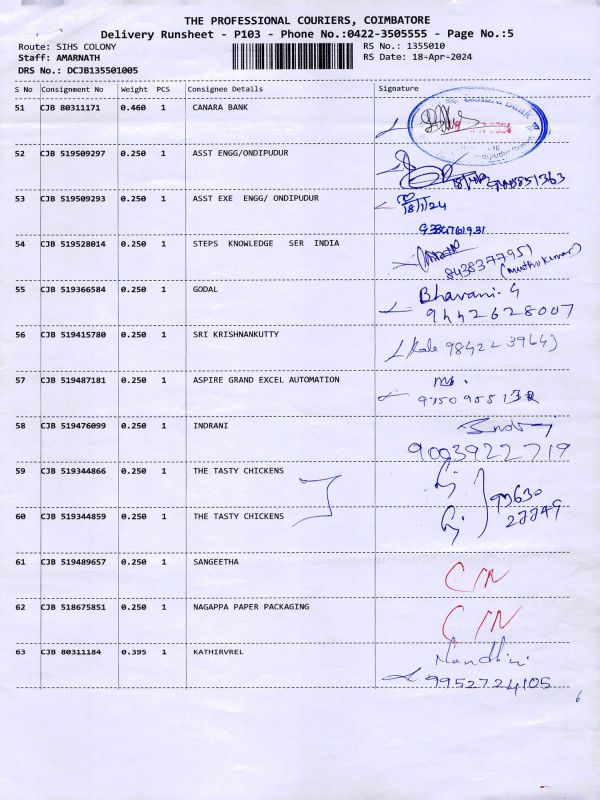 THE PROFESSIONAL COURIERS, COIMBATORE
Delivery Runsheet - P103 - Phone No.:0422-3505555 - Page No.:5
Route: SIHS COLONY RS No.: 1355010
Staff: AMARNATH RS Date: 18-Apr-2024
DRS No.: DCJB135501005
S No Consignment No Weight PCS Consignee Details Signature
51 CJB 80311171 0.460 1 CANARA BANK
52 CJB 519509297 0.250 1 ASST ENGG/ONDIPUDUR
53 CJB 519509293 0.250 1 ASST EXE ENGG/ ONDIPUDUR
54 CJB 519528014 0.250 1 STEPS KNOWLEDGE SER INDIA
8438377951
(Muthukumar)
55 CJB 519366584 0.250 1 GODAL Bhavani. G
9442628007
56 CJB 519415780 0.250 1 SRI KRISHNANKUTTY
57 CJB 519487181 0.250 1 ASPIRE GRAND EXCEL AUTOMATION
58 CJB 519476099 0.250 1 INDRANI
9003922719
59 CJB 519344866 0.250 1 THE TASTY CHICKENS
60 CJB 519344859 0.250 1 THE TASTY CHICKENS
61 CJB 519489657 0.250 1 SANGEETHA C/N
62 CJB 518675851 0.250 1 NAGAPPA PAPER PACKAGING C/N
63 CJB 80311184 0.395 1 KATHIRVREL Nandhini
9952724105
6